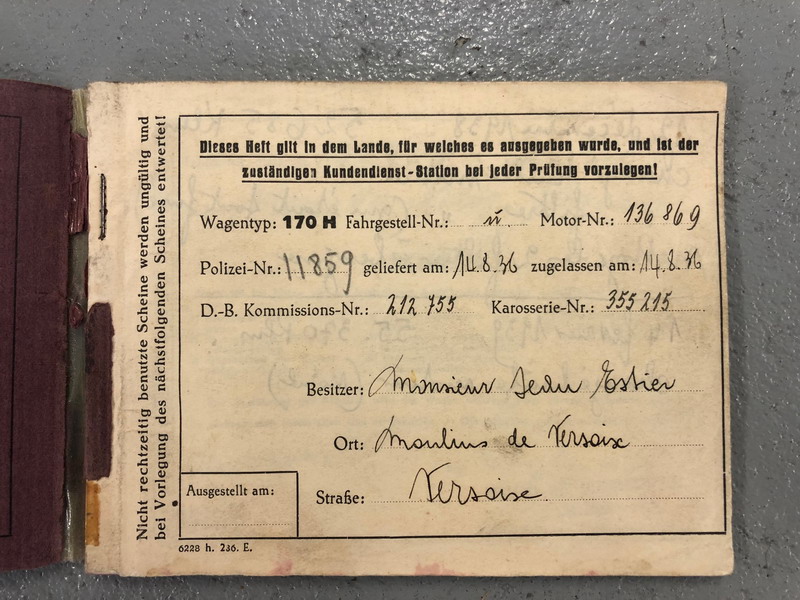 Nicht rechtzeitig benutzte Scheine werden ungültig und
bei Vorlegung des nächstfolgenden Scheines entwertet!
Dieses Heft gilt in dem Lande, für welches es ausgegeben wurde, und ist der
zuständigen Kundendienst-Station bei jeder Prüfung vorzulegen!
Wagentyp: 170 H Fahrgestell-Nr.: ü. Motor-Nr.: 136869
Polizei-Nr.: 11859 geliefert am: 14.8.36 zugelassen am: 14.8.36
D.-B. Kommissions-Nr.: 212 755 Karosserie-Nr.: 355215
Besitzer: Monsieur Jean Estier
Ort: Moulins de Versoix
Straße: Versoix
Ausgestellt am:
6228 h. 236. E.